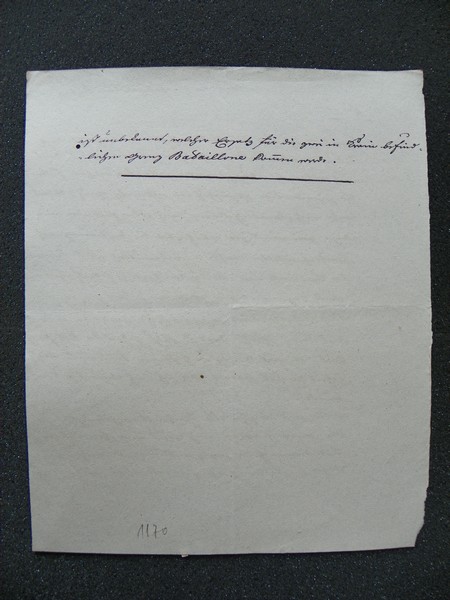 ist unbekannt, welcher Ersatz für die zwei in Krain befind-
-lichen Grenz Bataillone kommen werde.
1170